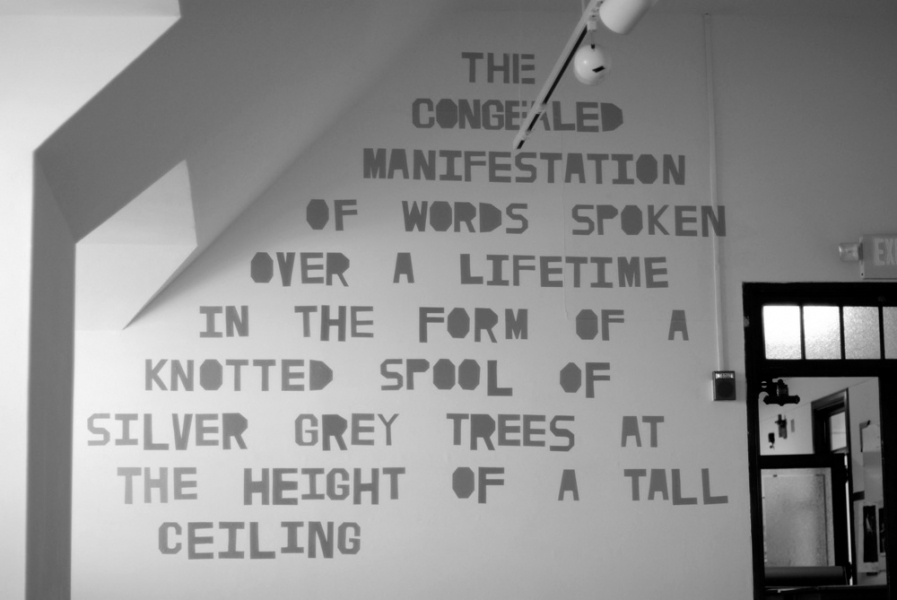 THE
CONGEALED
MANIFESTATION
OF WORDS SPOKEN
OVER A LIFETIME
IN THE FORM OF A
KNOTTED SPOOL OF
SILVER GREY TREES AT
THE HEIGHT OF A TALL
CEILING